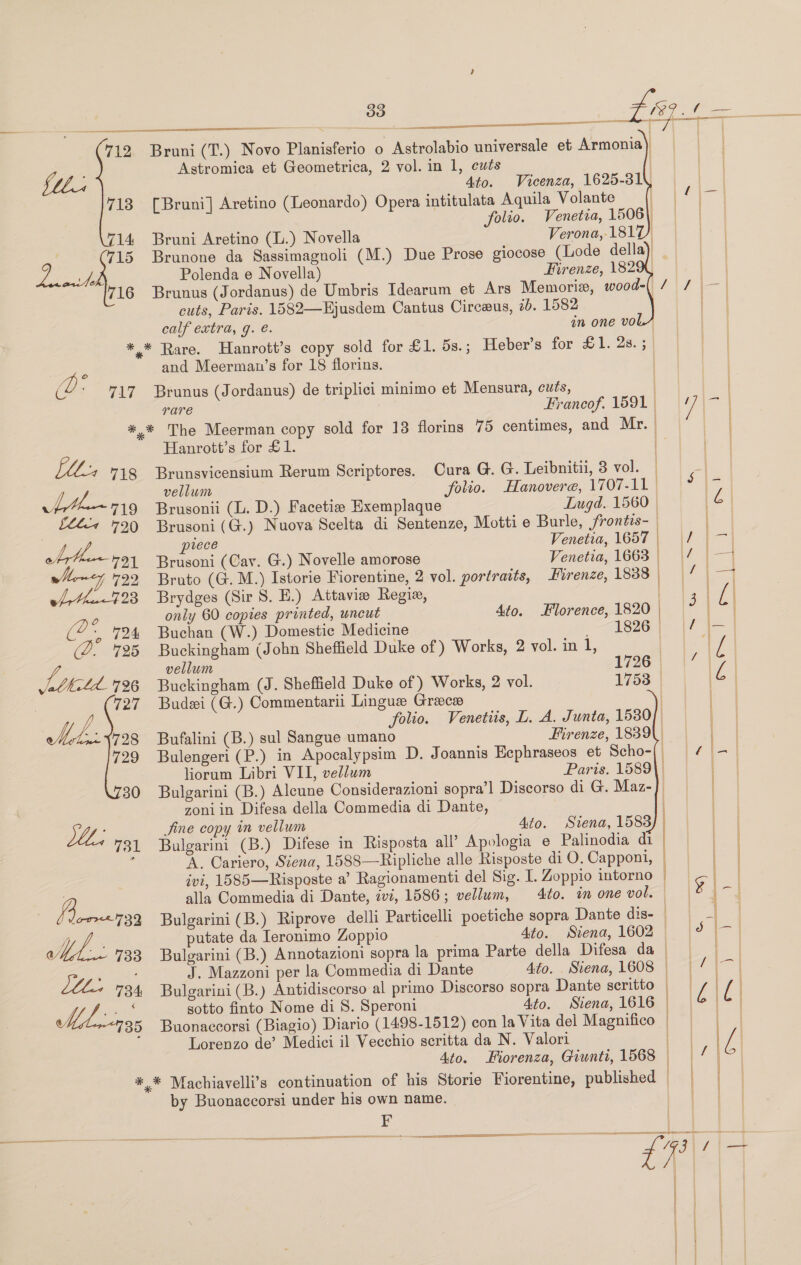 33 £189. 1 —
712 Bruni (T.) Novo Planisferio o Astrolabio universale et Armonia
Astromica et Geometrica, 2 vol. in 1, cuts
4to. Vicenza, 1625-31
713 [Bruni] Aretino (Leonardo) Opera intitulata Aquila Volante
folio. Venetia, 1506
714 Bruni Aretino (L.) Novella Verona, 1817
715 Brunone da Sassimagnoli (M.) Due Prose giocose (Lode della
Polenda e Novella) Firenze, 1829
716 Brunus (Jordanus) de Umbris Idearum et Ars Memoriæ, wood-
cuts, Paris. 1582—Ejusdem Cantus Circæus, ib. 1582
calf extra, g. e. in one vol.
*** Rare. Hanrott's copy sold for £1. 5s.; Heber's for £1. 2s.;
and Meerman's for 18 florins.
717 Brunus (Jordanus) de triplici minimo et Mensura, cuts,
rare Francof. 1591
*** The Meerman copy sold for 13 florins 75 centimes, and Mr.
Hanrott's for £1.
718 Brunsvicensium Rerum Scriptores. Cura G. G. Leibnitii, 3 vol.
vellum folio. Hanoveræ, 1707-11
719 Brusonii (L. D.) Facetiæ Exemplaque Lugd. 1560
720 Brusoni (G.) Nuova Scelta di Sentenze, Motti e Burle, frontis-
piece Venetia, 1657
721 Brusoni (Cav. G.) Novelle amorose Venetia, 1663
722 Bruto (G. M.) Istorie Fiorentine, 2 vol. portraits, Firenze, 1838
723 Brydges (Sir S. E.) Attaviæ Regiæ,
only 60 copies printed, uncut 4to. Florence, 1820
724 Buchan (W.) Domestic Medicine 1826
725 Buckingham (John Sheffield Duke of) Works, 2 vol. in 1,
vellum 1726
726 Buckingham (J. Sheffield Duke of) Works, 2 vol. 1753
727 Budæi (G.) Commentarii Linguæ Græcæ
folio. Venetiis, L. A. Junta, 1530
728 Bufalini (B.) sul Sangue umano Firenze, 1839
729 Bulengeri (P.) in Apocalypsim D. Joannis Ecphraseos et Scho-
liorum Libri VII, vellum Paris. 1589
730 Bulgarini (B.) Alcune Considerazioni sopra'l Discorso di G. Maz-
zoni in Difesa della Commedia di Dante,
fine copy in vellum 4to. Siena, 1583
731 Bulgarini (B.) Difese in Risposta all' Apologia e Palinodia di
A. Cariero, Siena, 1588—Ripliche alle Risposte di O. Capponi,
ivi, 1585—Risposte a' Ragionamenti del Sig. I. Zoppio intorno
alla Commedia di Dante, ivi, 1586; vellum, 4to. in one vol.
732 Bulgarini (B.) Riprove delli Particelli poetiche sopra Dante dis-
putate da Ieronimo Zoppio 4to. Siena, 1602
733 Bulgarini (B.) Annotazioni sopra la prima Parte della Difesa da
J. Mazzoni per la Commedia di Dante 4to. Siena, 1608
734 Bulgarini (B.) Antidiscorso al primo Discorso sopra Dante scritto
sotto finto Nome di S. Speroni 4to. Siena, 1616
735 Buonaccorsi (Biagio) Diario (1498-1512) con la Vita del Magnifico
Lorenzo de' Medici il Vecchio scritta da N. Valori
4to. Fiorenza, Giunti, 1568
*** Machiavelli's continuation of his Storie Fiorentine, published
by Buonaccorsi under his own name.
F
£193 1 —